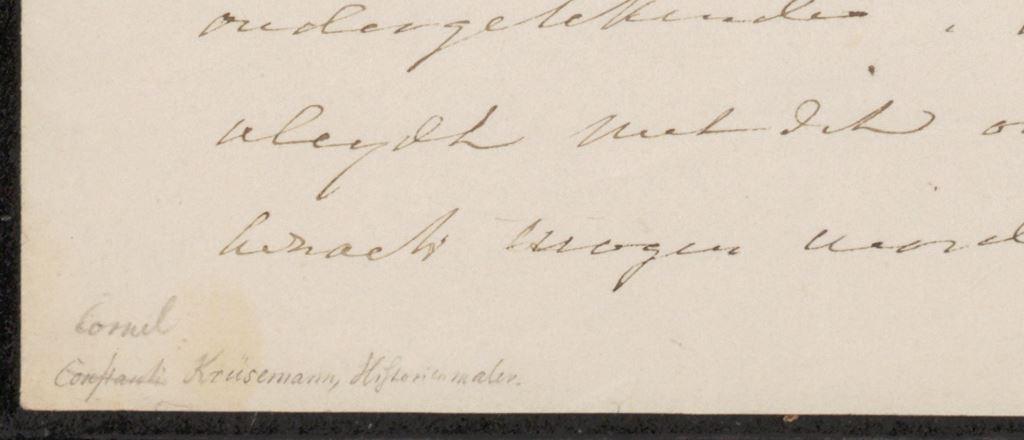 ondergetekende
altijdt met dit
bragt mogen word
Cornel
Constanti Krüsemann, Historienmaler.